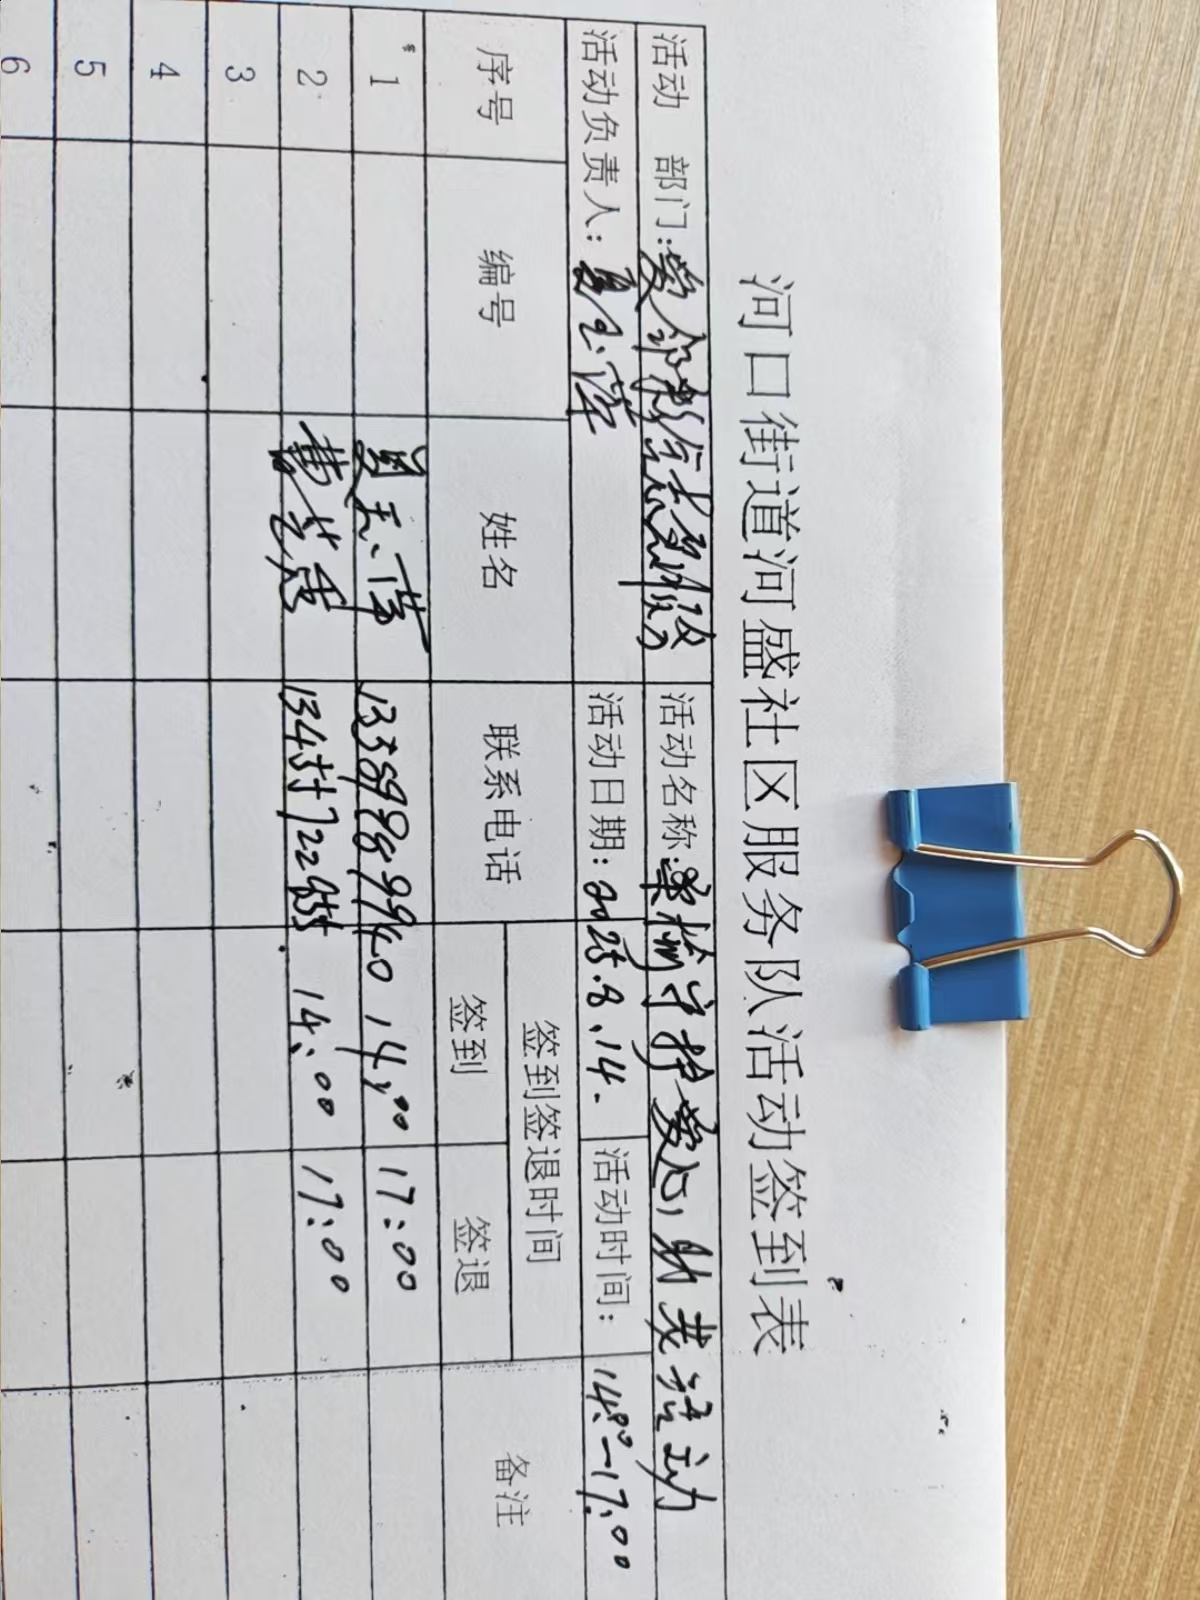 河口街道河盛社区服务队活动签到表
活动 部门:爱邻 志愿服务队 活动名称:柔榆守护爱心,助 活动
活动负责人:夏玉萍 活动日期:2025.8.14. 活动时间:14:00-17:00
序号 编号 姓名 联系电话 签到签退时间 备注
签到 签退
1 夏玉萍 13389889940 14:00 17:00
2 14:00 17:00
3
4
5
6